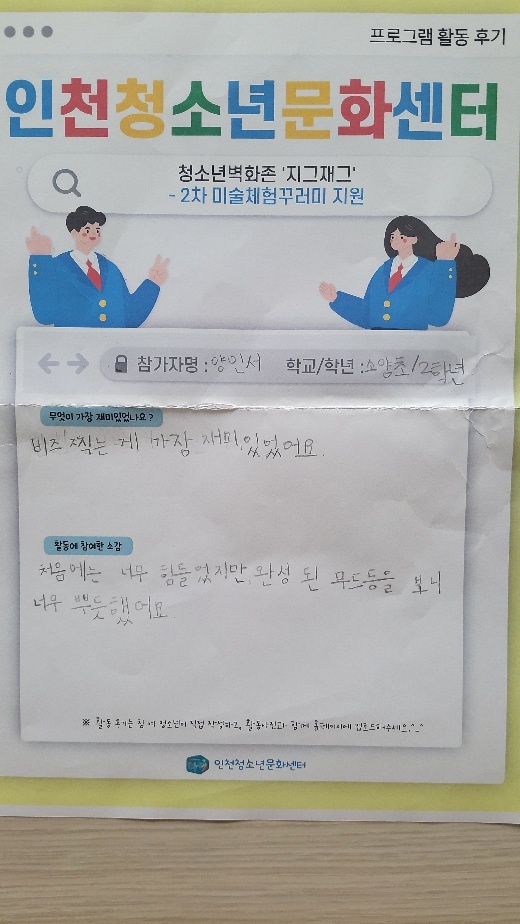 프로그램 활동 후기
인천청소년문화센터
청소년벽화존 '지그재그'
- 2차 미술체험꾸러미 지원
참가자명 : 양인서 학교/학년 : 소양초/2학년
무엇이 가장 재미있었나요?
비즈 찍는 게 가장 재미있었어요.
활동에 참여한 소감
처음에는 너무 힘들었지만, 완성 된 무드등을 보니
너무 뿌듯했어요.
※ 활동 후기는 참여 청소년이 직접 작성하고, 활동사진과 함께 홈페이지에 업로드해주세요.^_^
인천청소년문화센터